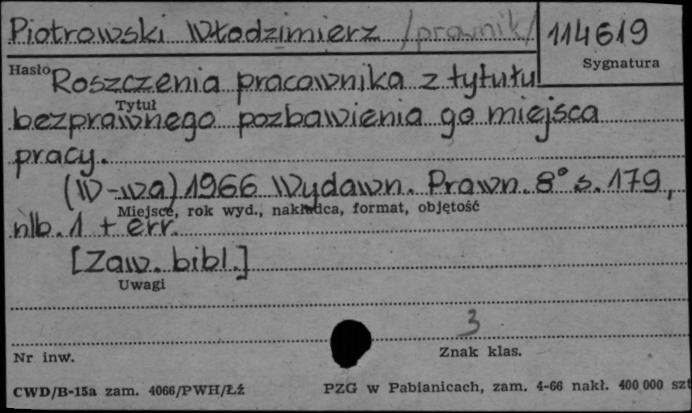 Piotrowski Włodzimierz /prawnik/ 114619
Hasło Sygnatura
Roszczenia pracownika z tytułu
Tytuł
bezprawnego pozbawienia go miejsca
pracy.
(W-wa) 1966 Wydawn. Prawn. 8° s. 179,
Miejsce, rok wyd., nakładca, format, objętość
nlb. 1 + err.
[Zaw. bibl.]
Uwagi
3
Nr inw. Znak klas.
CWD/B-15a zam. 4066/PWH/Łź PZG w Pabianicach, zam. 4-66 nakł. 400 000 szt